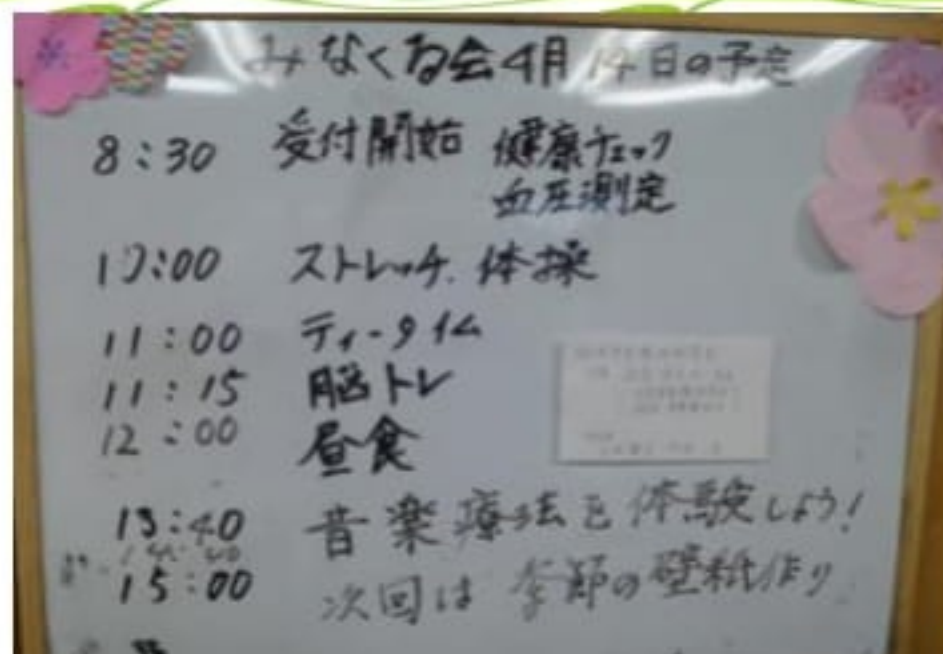 みなくる会4月14日の予定
8:30 受付開始 健康チェック
血圧測定
10:00 ストレッチ. 体操
11:00 ティータイム
11:15 脳トレ
12:00 昼食
13:40 音楽療法を体験しよう!
15:00 次回は 季節の壁紙作り